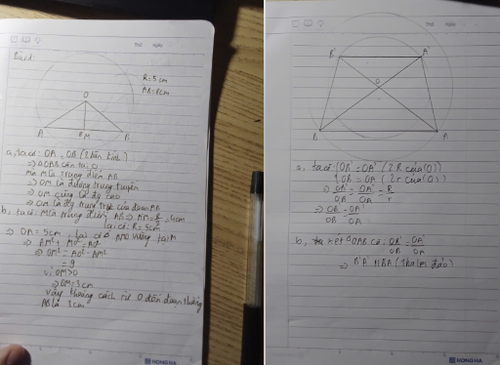 Bài 1:
O
R = 5 cm
AB = 8 cm
A
M
B
a, ta có: OA = OB (2 bán kính)
=> ΔOAB cân tại O
Mà M là trung điểm AB
=> OM là đường trung tuyến
=> OM cũng là đg cao
=> OM là đg trung trực của đoạn AB
b, ta có: M là trung điểm AB => AM = = 4cm
lại có: R = 5cm
=> OA = 5cm, lại có Δ AMO vuông tại M
=> AM² + MO² = AO²
=> OM² = AO² - AM²
= 9
vì OM > 0
=> OM = 3 cm
Vậy khoảng cách từ O đến đoạn thẳng
AB là 3 cm
HONG HA
Thứ ngày
B' A'
O
B A
a, ta có: OB' = OA' (2 R của (O))
OB = OA (2 r của (O))
=> OB'/OB = OA'/OA = R/r
=> OB'/OB = OA'/OA
b, xét ΔOAB có: OB'/OB = OA'/OA
=> B'A' // BA (Thales đảo)
HONG HA